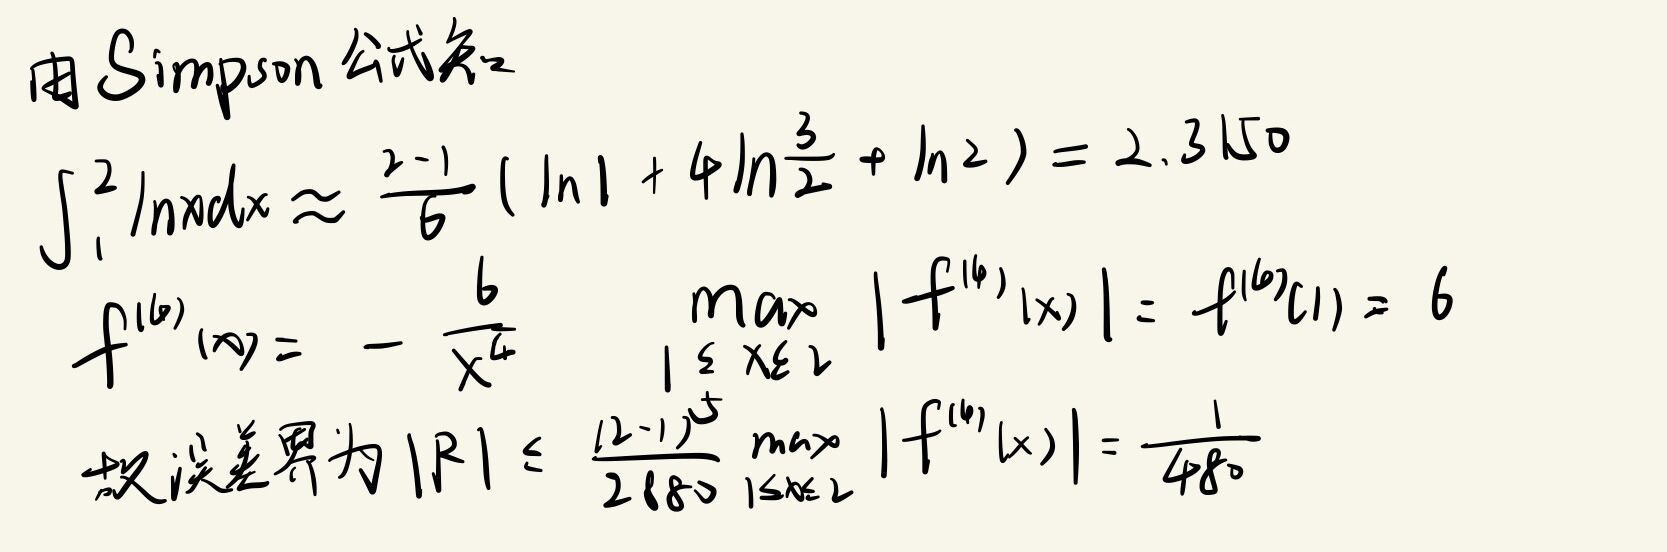 由Simpson公式知
∫₁² lnxdx ≈ (2-1)/6 ( ln1 + 4ln 3/2 + ln2 ) = 2.3150
f⁽⁶⁾(x) = - 6/x⁴ max 1≤x≤2 |f⁽⁴⁾(x)| = f⁽⁶⁾(1) = 6
故误差界为 |R| ≤ (2-1)⁵/2880 max 1≤x≤2 |f⁽⁴⁾(x)| = 1/480